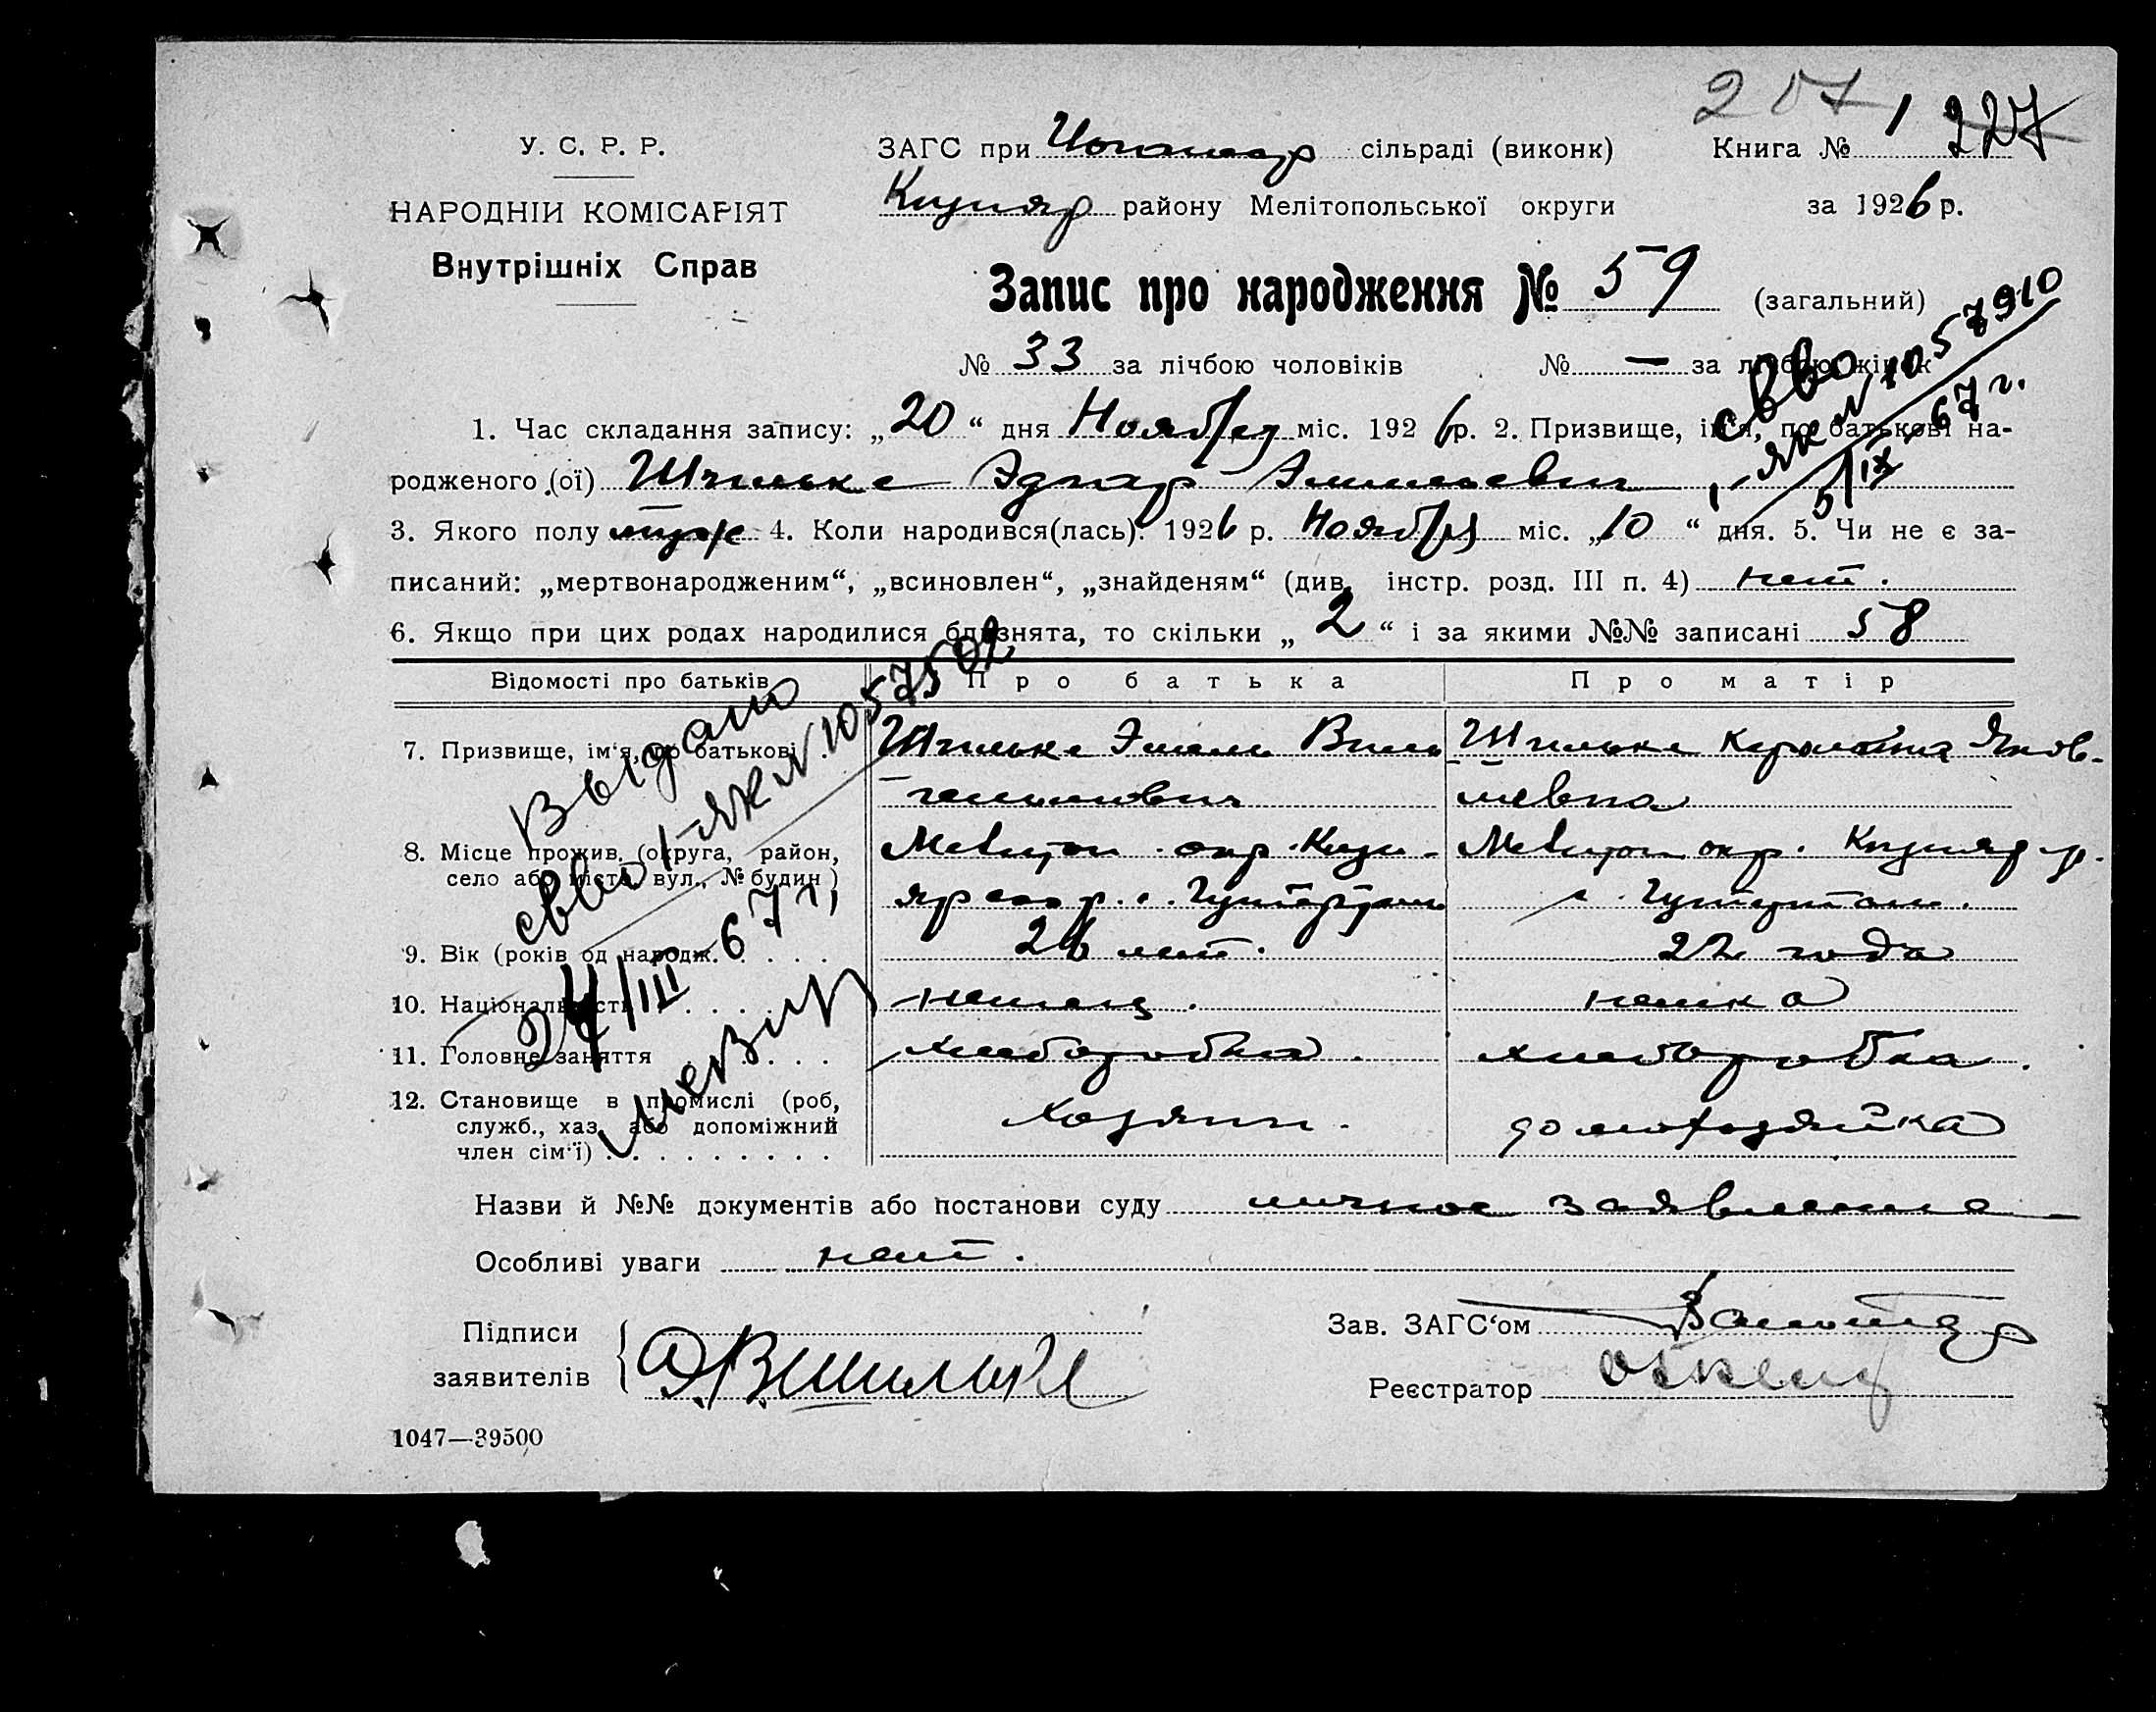 207 / 227
У. С. Р. Р.
ЗАГС при сільраді (виконк) Книга №
НАРОДНІЙ КОМІСАРІЯТ
району Мелітопольської округи за 1926 р.
Внутрішніх Справ
Запис про народження № 59 (загальний)
№ 33 за лічбою чоловіків № — за лічбою жінок
1. Час складання запису: „20“ дня Ноября міс. 1926 р. 2. Призвище, ім'я, по батькові на-
родженого (ої) Шильке Эдгар Эмильевич
3. Якого полу муж 4. Коли народився(лась). 1926 р. Ноября міс. „10“ дня. 5. Чи не є за-
писаний: „мертвонародженим“, „всиновлен“, „знайденям“ (див. інстр. розд. III п. 4) нет.
6. Якщо при цих родах народилися близнята, то скільки „2“ і за якими №№ записані 58
Відомості про батьків Про батька Про матір
7. Призвище, ім'я, по батькові . . Шильке Эмиль Виль Шильке Каролина Яков-
гельмович левна
8. Місце прожив. (округа, район, Мелитоп. окр. Кизи- Мелитоп окр. Кизияр р.
село або місто, вул., № будин)
9. Вік (років од народж. . . . . . 26 лет. 22 года
10. Національність . . . . . . немец. немка
11. Головне заняття . . . . хлеборобка.
12. Становище в промислі (роб, Хозяин. домохозяйка
служб., хаз. або допоміжний
член сім'ї) . . . . . . . . .
Назви й №№ документів або постанови суду личное заявление
Особливі уваги нет.
Підписи Зав. ЗАГС‘ом
заявителів Э.В.Шильке Реєстратор
1047—39500
св-во
I-яж N 1057910
5/IX-67 г.
Выдано
св-во I-яж N 1057502
24/III-67 г,